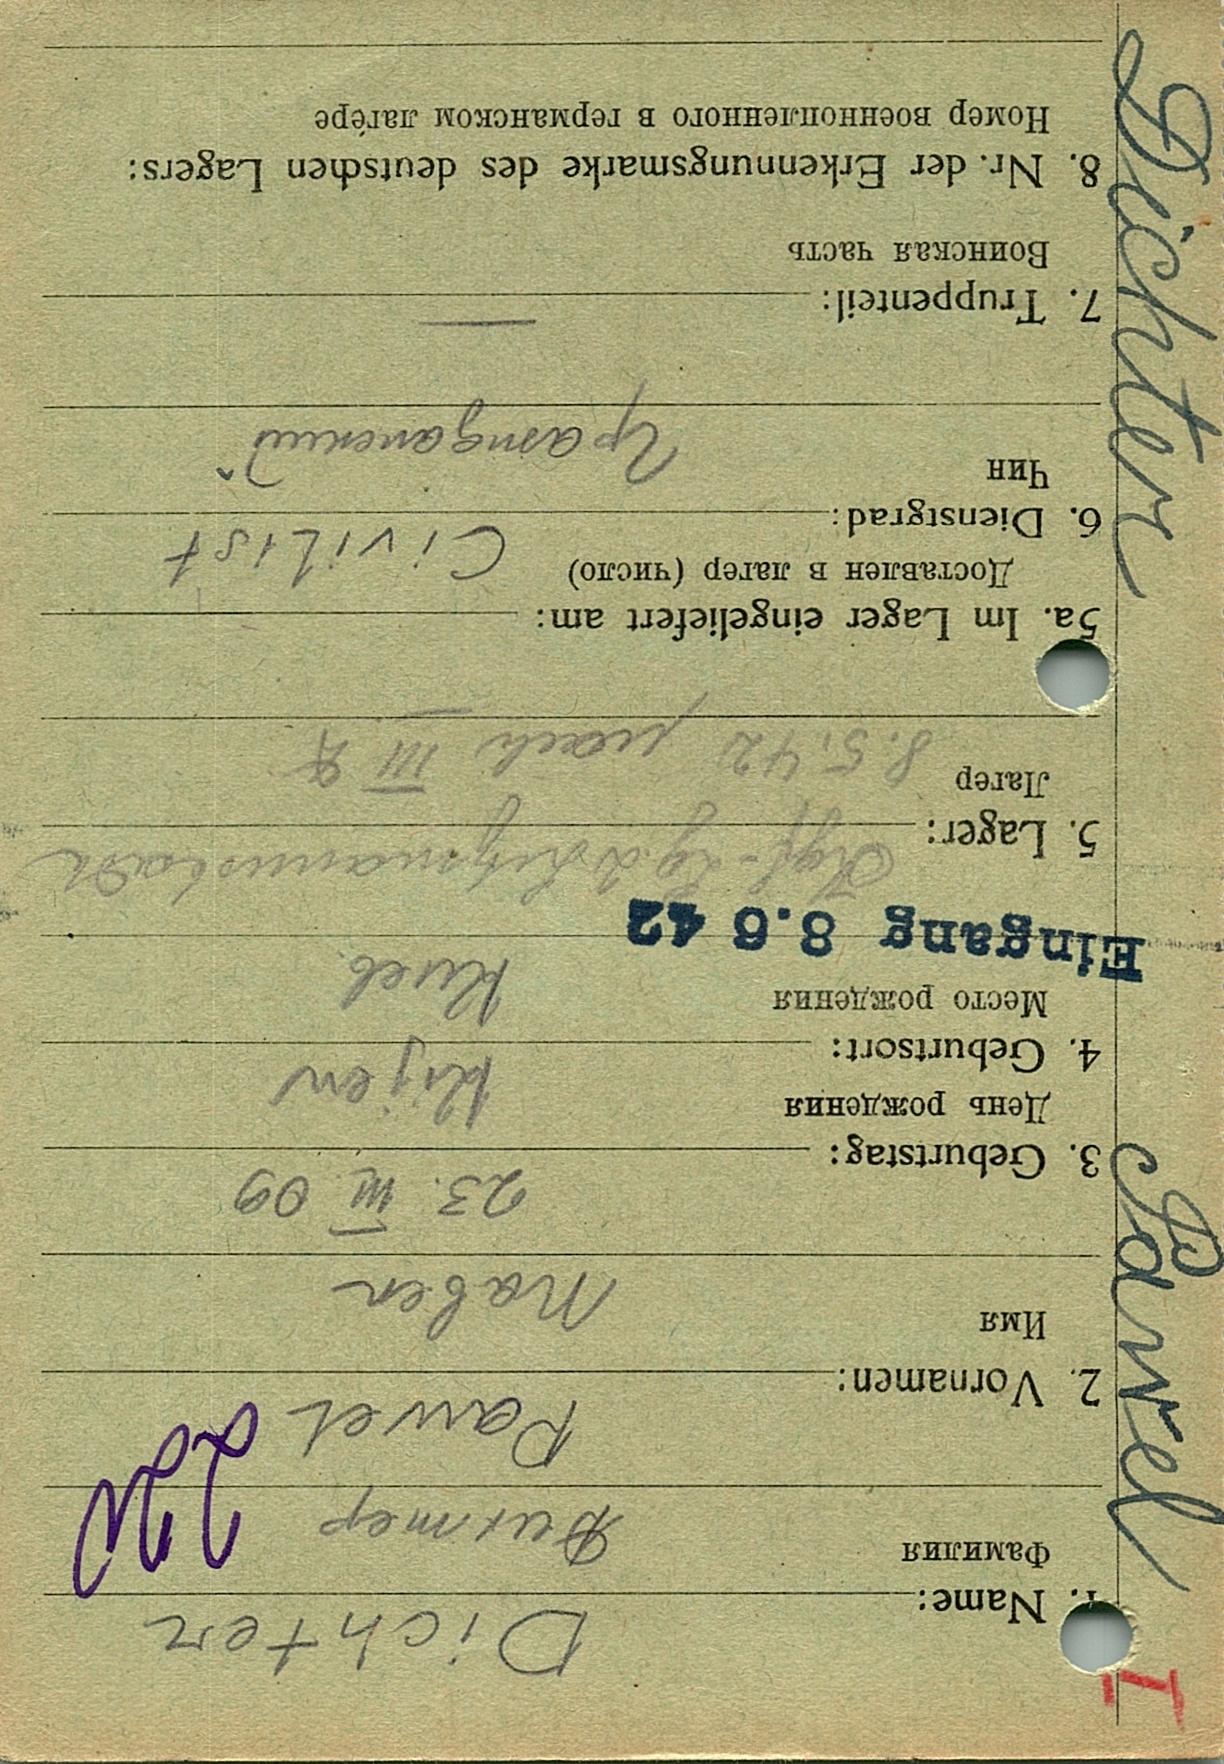 I
Dichter
1. Name:
Фамилия
Дихтер
Pawel
2. Vornamen:
Имя
Павел
23. III. 09
3. Geburtstag:
День рождения
Kijew
4. Geburtsort:
Место рождения
Киев.
Eingang 8.6 42
5. Lager:
Лагер
8.5.42 nach III A
5a. Im Lager eingeliefert am:
Доставлен в лагер (число)
Civilist
6. Dienstgrad:
Чин
Гражданский
7. Truppenteil:
Воинская часть
8. Nr. der Erkennungsmarke des deutschen Lagers:
Номер военнопленного в германском лагере
Dichter Pawel